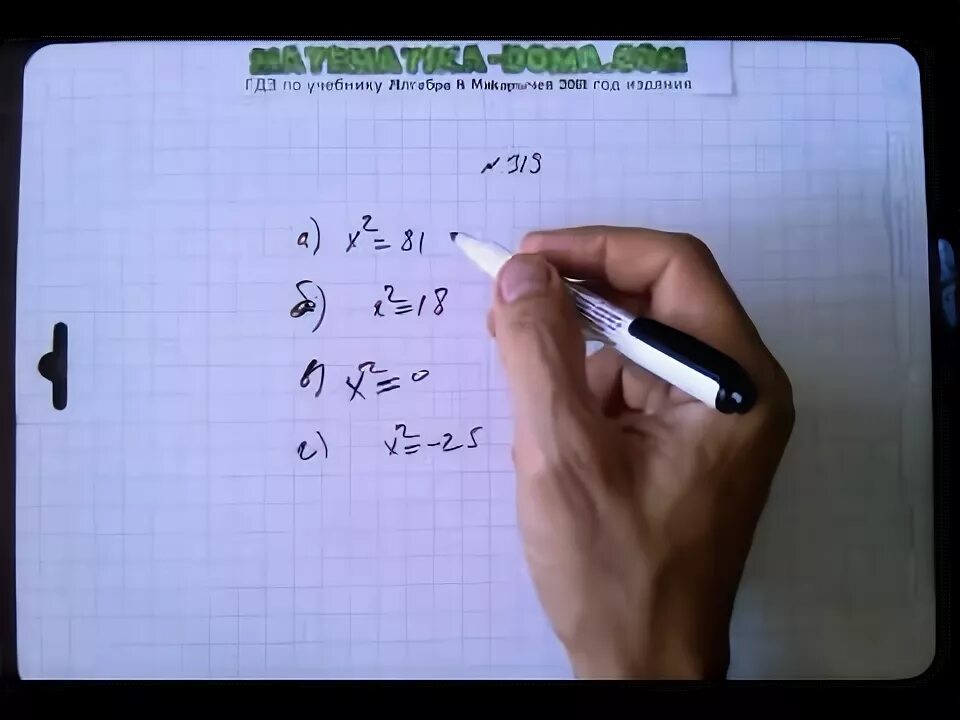 MATEMATIKA-DOMA.COM
ГДЗ по учебнику Алгебра 8 Макарычев год издания
№ 319
а) x² = 81
б) x² = 18
в) x² = 0
г) x² = -25